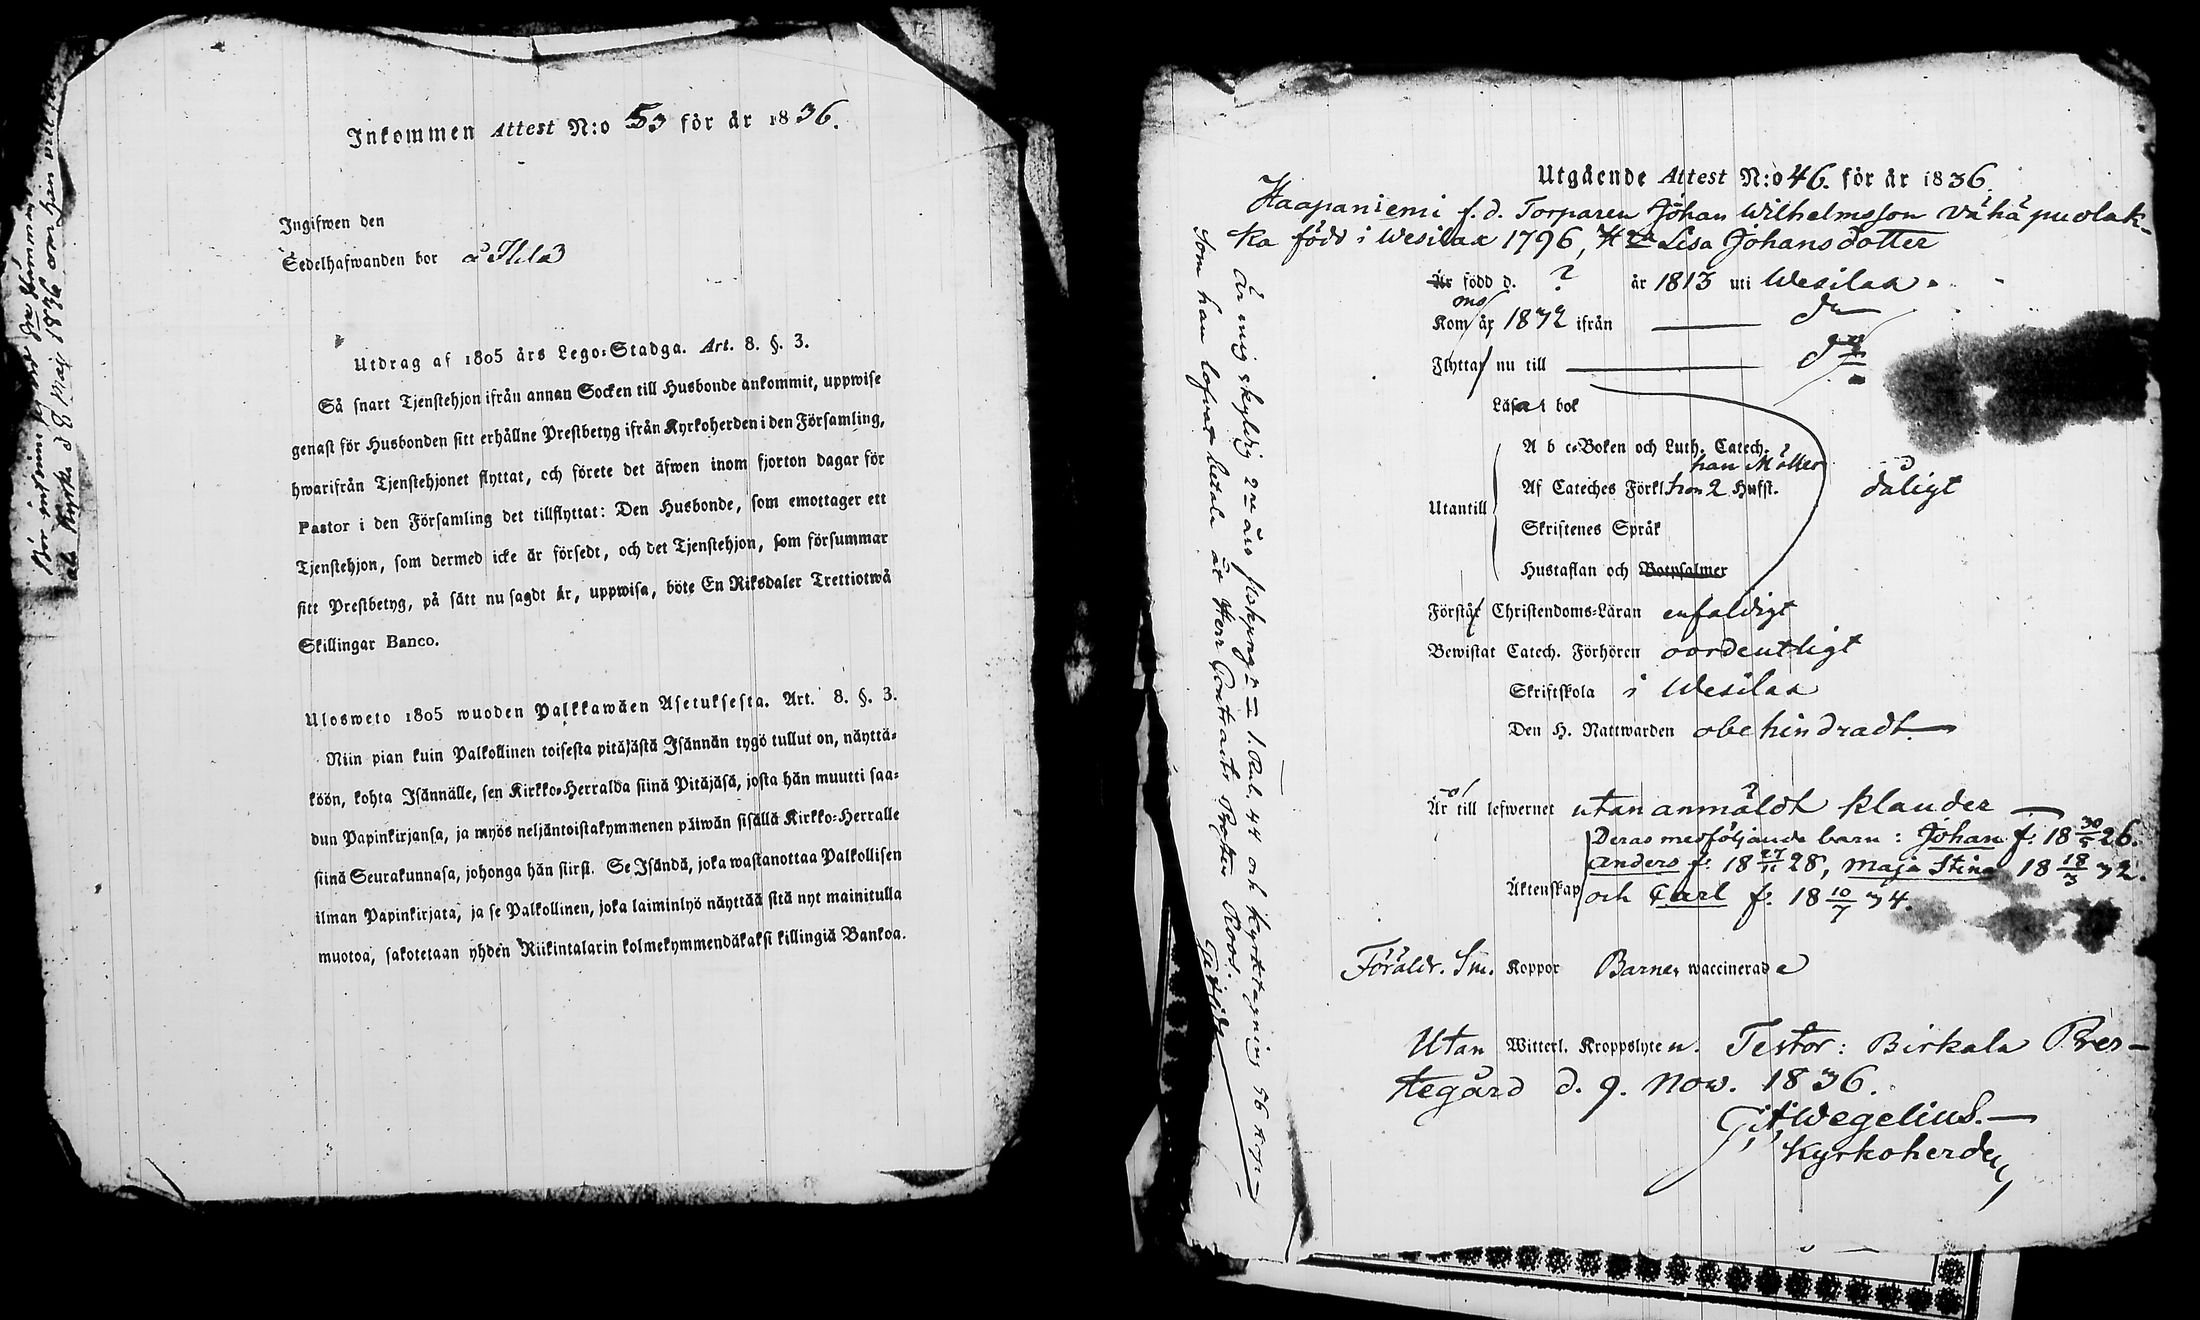 Inkommen Attest N:o 53 för år 1836.
Ingifwen den
Sedelhafwanden bor å
Utdrag af 1805 års Lego-Stadga. Art. 8. §. 3.
Så snart Tjenstehjon ifrån annan Socken till Husbonde ankommit, uppwise
genast för Husbonden sitt erhållne Prestbetyg ifrån Kyrkoherden i den Församling,
hwarifrån Tjenstehjonet flyttat, och förete det äfwen inom fjorton dagar för
Pastor i den Församling det tillflyttat: Den Husbonde, som emottager ett
Tjenstehjon, som dermed icke är försedt, och det Tjenstehjon, som försummar
sitt Prestbetyg, på sätt nu sagdt är, uppwisa, böte En Riksdaler Trettiotwå
Skillingar Banco.
Ulosweto 1805 wuoden Palkkawäen Asetuksesta. Art. 8. §. 3.
Niin pian kuin Palkollinen toisesta pitäjästä Isännän tygö tullut on, näyttä-
köön, kohta Isännälle, sen Kirkko-Herralda siinä Pitäjäsä, josta hän muutti saa-
dun Papinkirjansa, ja myös neljäntoistakymmenen päiwän sisällä Kirkko-Herralle
siinä Seurakunnasa, johonga hän siirsi. Se Isändä, joka wastanottaa Palkollisen
ilman Papinkirjata, ja se Palkollinen, joka laiminlyö näyttää sitä nyt mainitulla
muotoa, sakotetaan yhden Riikintalarin kolmekymmendäkaksi killingiä Bankoa.
Utgående Attest N:o 46. för år 1836.
Haapaniemi f. d. Torparen Johan Wilhelmsson Vähäpuolak-
ka född i Wesilax 1796, H Lisa Johansdotter
Är född d. ? år 1813 uti Wesilax
Kom år 1832 ifrån — do
Flyttar nu till — do
Läsa i bok
A b c-Boken och Luth. Catech.
han Möller
Af Cateches Förkl. hon 2 Hufst. dåligt
Utantill
Skriftenes Språk
Hustaflan och Botpsalmer
Förstår Christendoms-Läran enfaldigt
Bewistat Catech. Förhören oordentligt
Skriftskola i Wesilax
Den H. Nattwarden obehindradt
Är till lefwernet utan anmäldt klander
Deras medföljande barn: Johan f. 18 30/5 26.
Anders f. 18 27/11 28, Maja Stina 18 18/3 32.
Äktenskap och Carl f. 18 10/7 34.
Föräldr. Sm. Koppor Barnen waccinerade
Utan Witterl. Kroppslyten. Testor: Birkala Pres-
tegård d. 9. Now. 1836.
Wegelius.
Kyrkoherde
Är mig skyldig 2ne års 1. Rub. 44 och Kyrktagning 56 kop.
Som han lofvat betala åt Herr Contracts Prosten Roos.